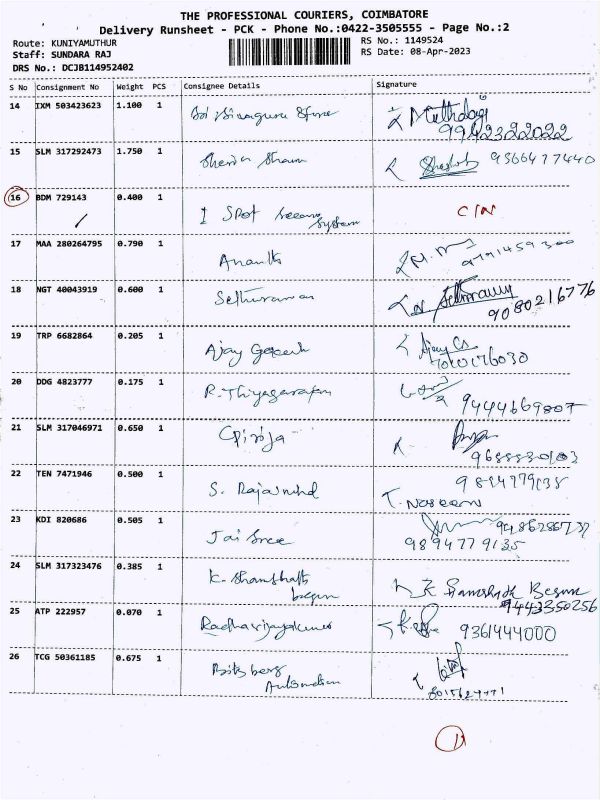 THE PROFESSIONAL COURIERS, COIMBATORE
Delivery Runsheet - PCK - Phone No.:0422-3505555 - Page No.:2
Route: KUNIYAMUTHUR
RS No.: 1149524
Staff: SUNDARA RAJ
RS Date: 08-Apr-2023
DRS No.: DCJB114952402
S No Consignment No Weight PCS Consignee Details Signature
14 IXM 503423623 1.100 1
9942322022
15 SLM 317292473 1.750 1 9366477440
16 BDM 729143 0.400 1 I Spot System C/N
17 MAA 280264795 0.790 1 Ananth
18 NGT 40043919 0.600 1 Sethuraman
9080216776
19 TRP 6682864 0.205 1 Ajay Ganesh Ajay Gs
20 DDG 4823777 0.175 1 R. Thiyagarajan
9444669807
21 SLM 317046971 0.650 1
22 TEN 7471946 0.500 1 S. Rajamohd
T. Naseem
23 KDI 820686 0.505 1 Jai Sree
9894779135
24 SLM 317323476 0.385 1 K. Shamshath begum
9443350256
25 ATP 222957 0.070 1 Radhavijayakumar 9361444000
26 TCG 50361185 0.675 1 Bitsberg Automation